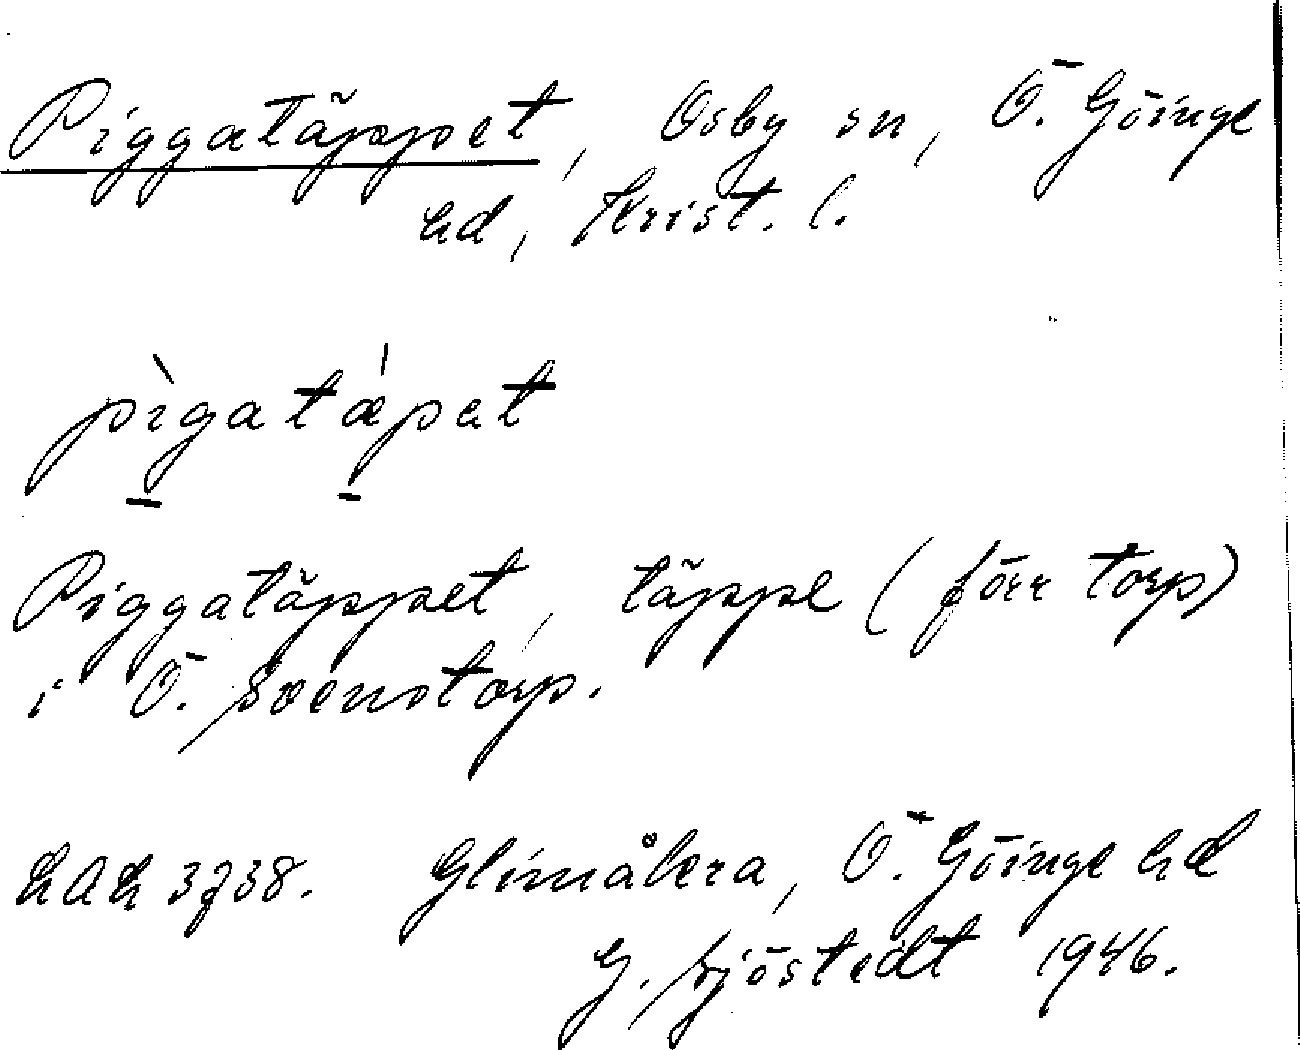 Piggatäppet, Osby sn, Ö. Göinge
hd, Krist. l.
pìgatæ̀pet
Piggatäppet, täppe (förr torp)
i Ö. Svenstorp.
LAL 3738. Glimåkra, Ö. Göinge hd
G. Sjöstedt 1946.